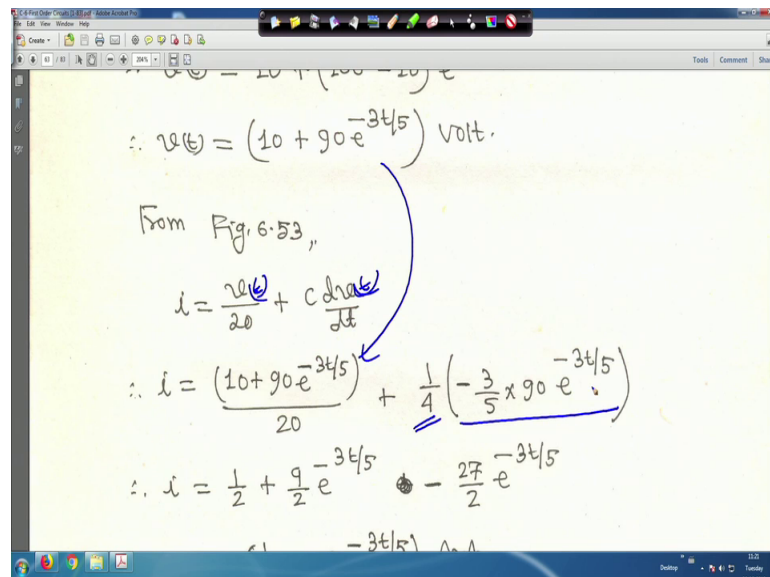 IC-6-First Order Circuits [1-63].pdf - Adobe Acrobat Pro
File Edit View Window Help
Create
63 / 83 204% Tools Comment
∴ v(t) = (10 + 90e^{-3t/5}) volt.
From Fig. 6.53,,
i = v(t)/20 + C dv(t)/dt
∴ i = (10 + 90e^{-3t/5})/20 + 1/4 (-3/5 × 90 e^{-3t/5})
∴ i = 1/2 + 9/2 e^{-3t/5} - 27/2 e^{-3t/5}
-3t/5)
Desktop 11:21
Tuesday